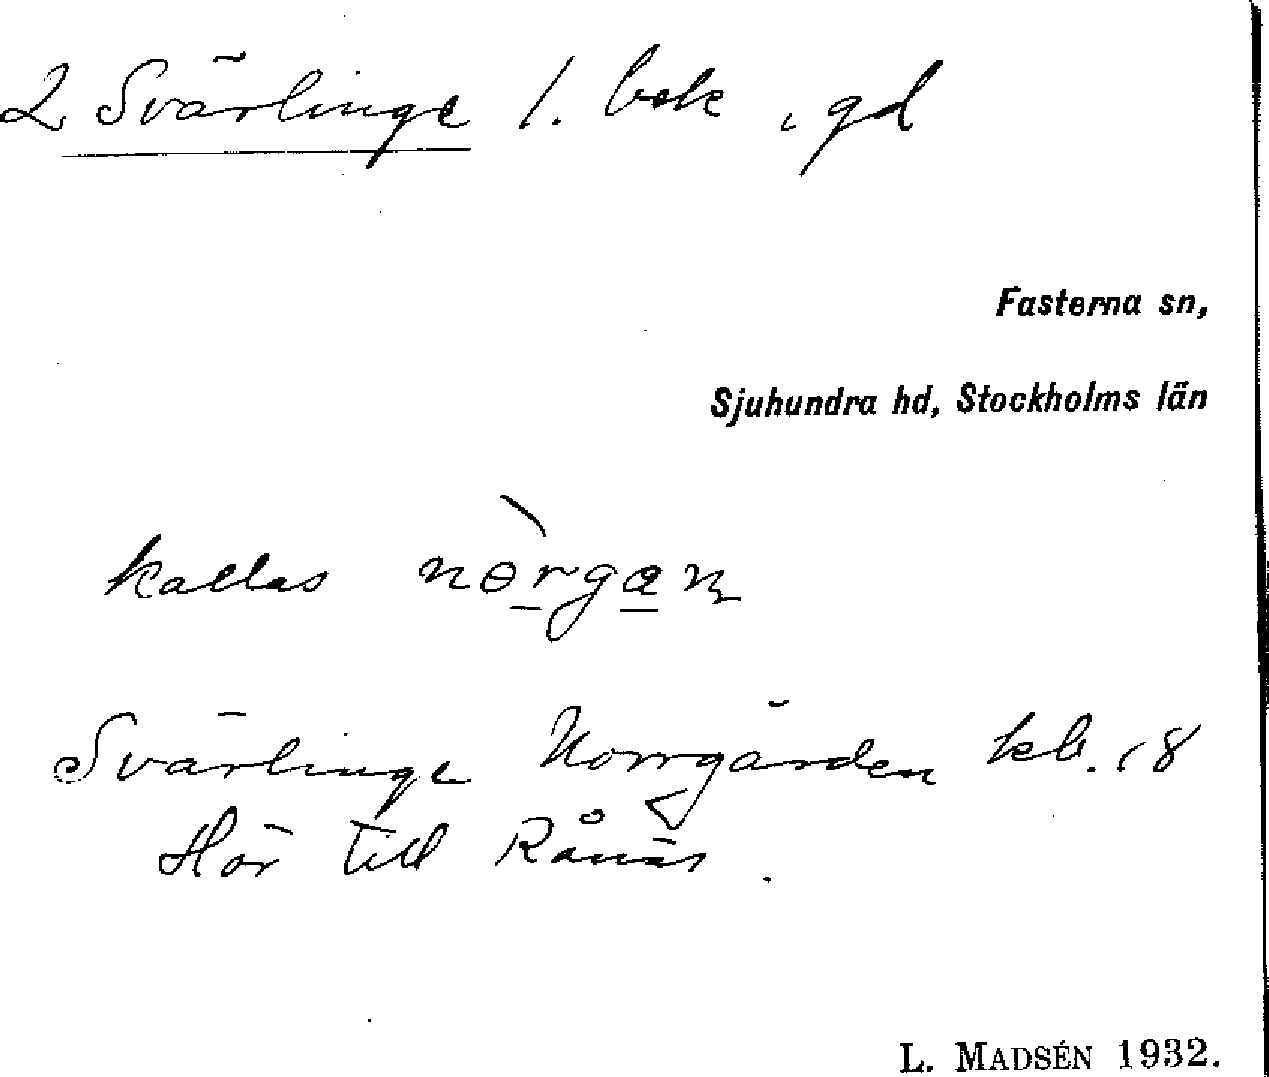 2 Svärlinge 1. bek , gd
Fasterna sn,
Sjuhundra hd, Stockholms län
kallas nòrgan
Svärlinge Norrgården kb. 18
Hör till Rånäs.
L. MADSÉN 1932.